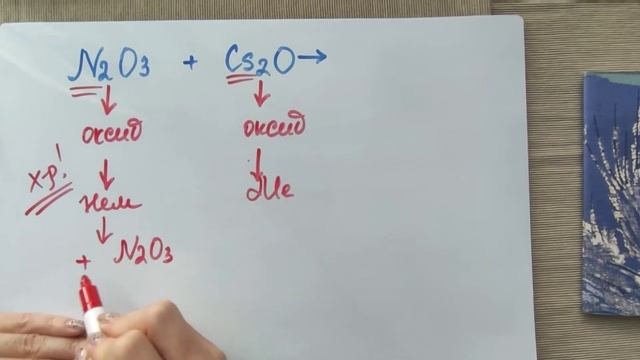 N2O3 + Cs2O →
оксид оксид
х.р!
нем Ме
+ N2O3